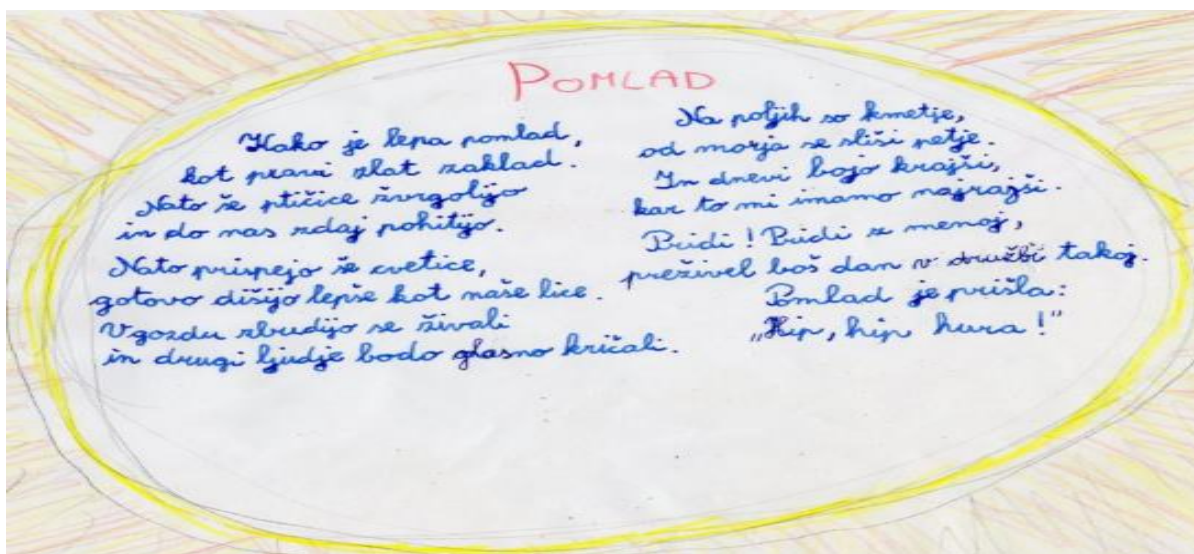 POMLAD
Kako je lepa pomlad,
kot pravi zlat zaklad.
Nato še ptičice žvrgolijo
in do nas zdaj pohitijo.
Nato prispejo še cvetice,
gotovo dišijo lepše kot naše lice.
V gozdu zbudijo se živali
in drugi ljudje bodo glasno kričali.
Na poljih so kmetje,
od morja se sliši petje.
In dnevi bojo krajši,
kar to mi imamo najrajši.
Pridi! Pridi z menoj,
preživel boš dan v družbi takoj.
Pmlad je prišla:
„Hip, hip hura!"